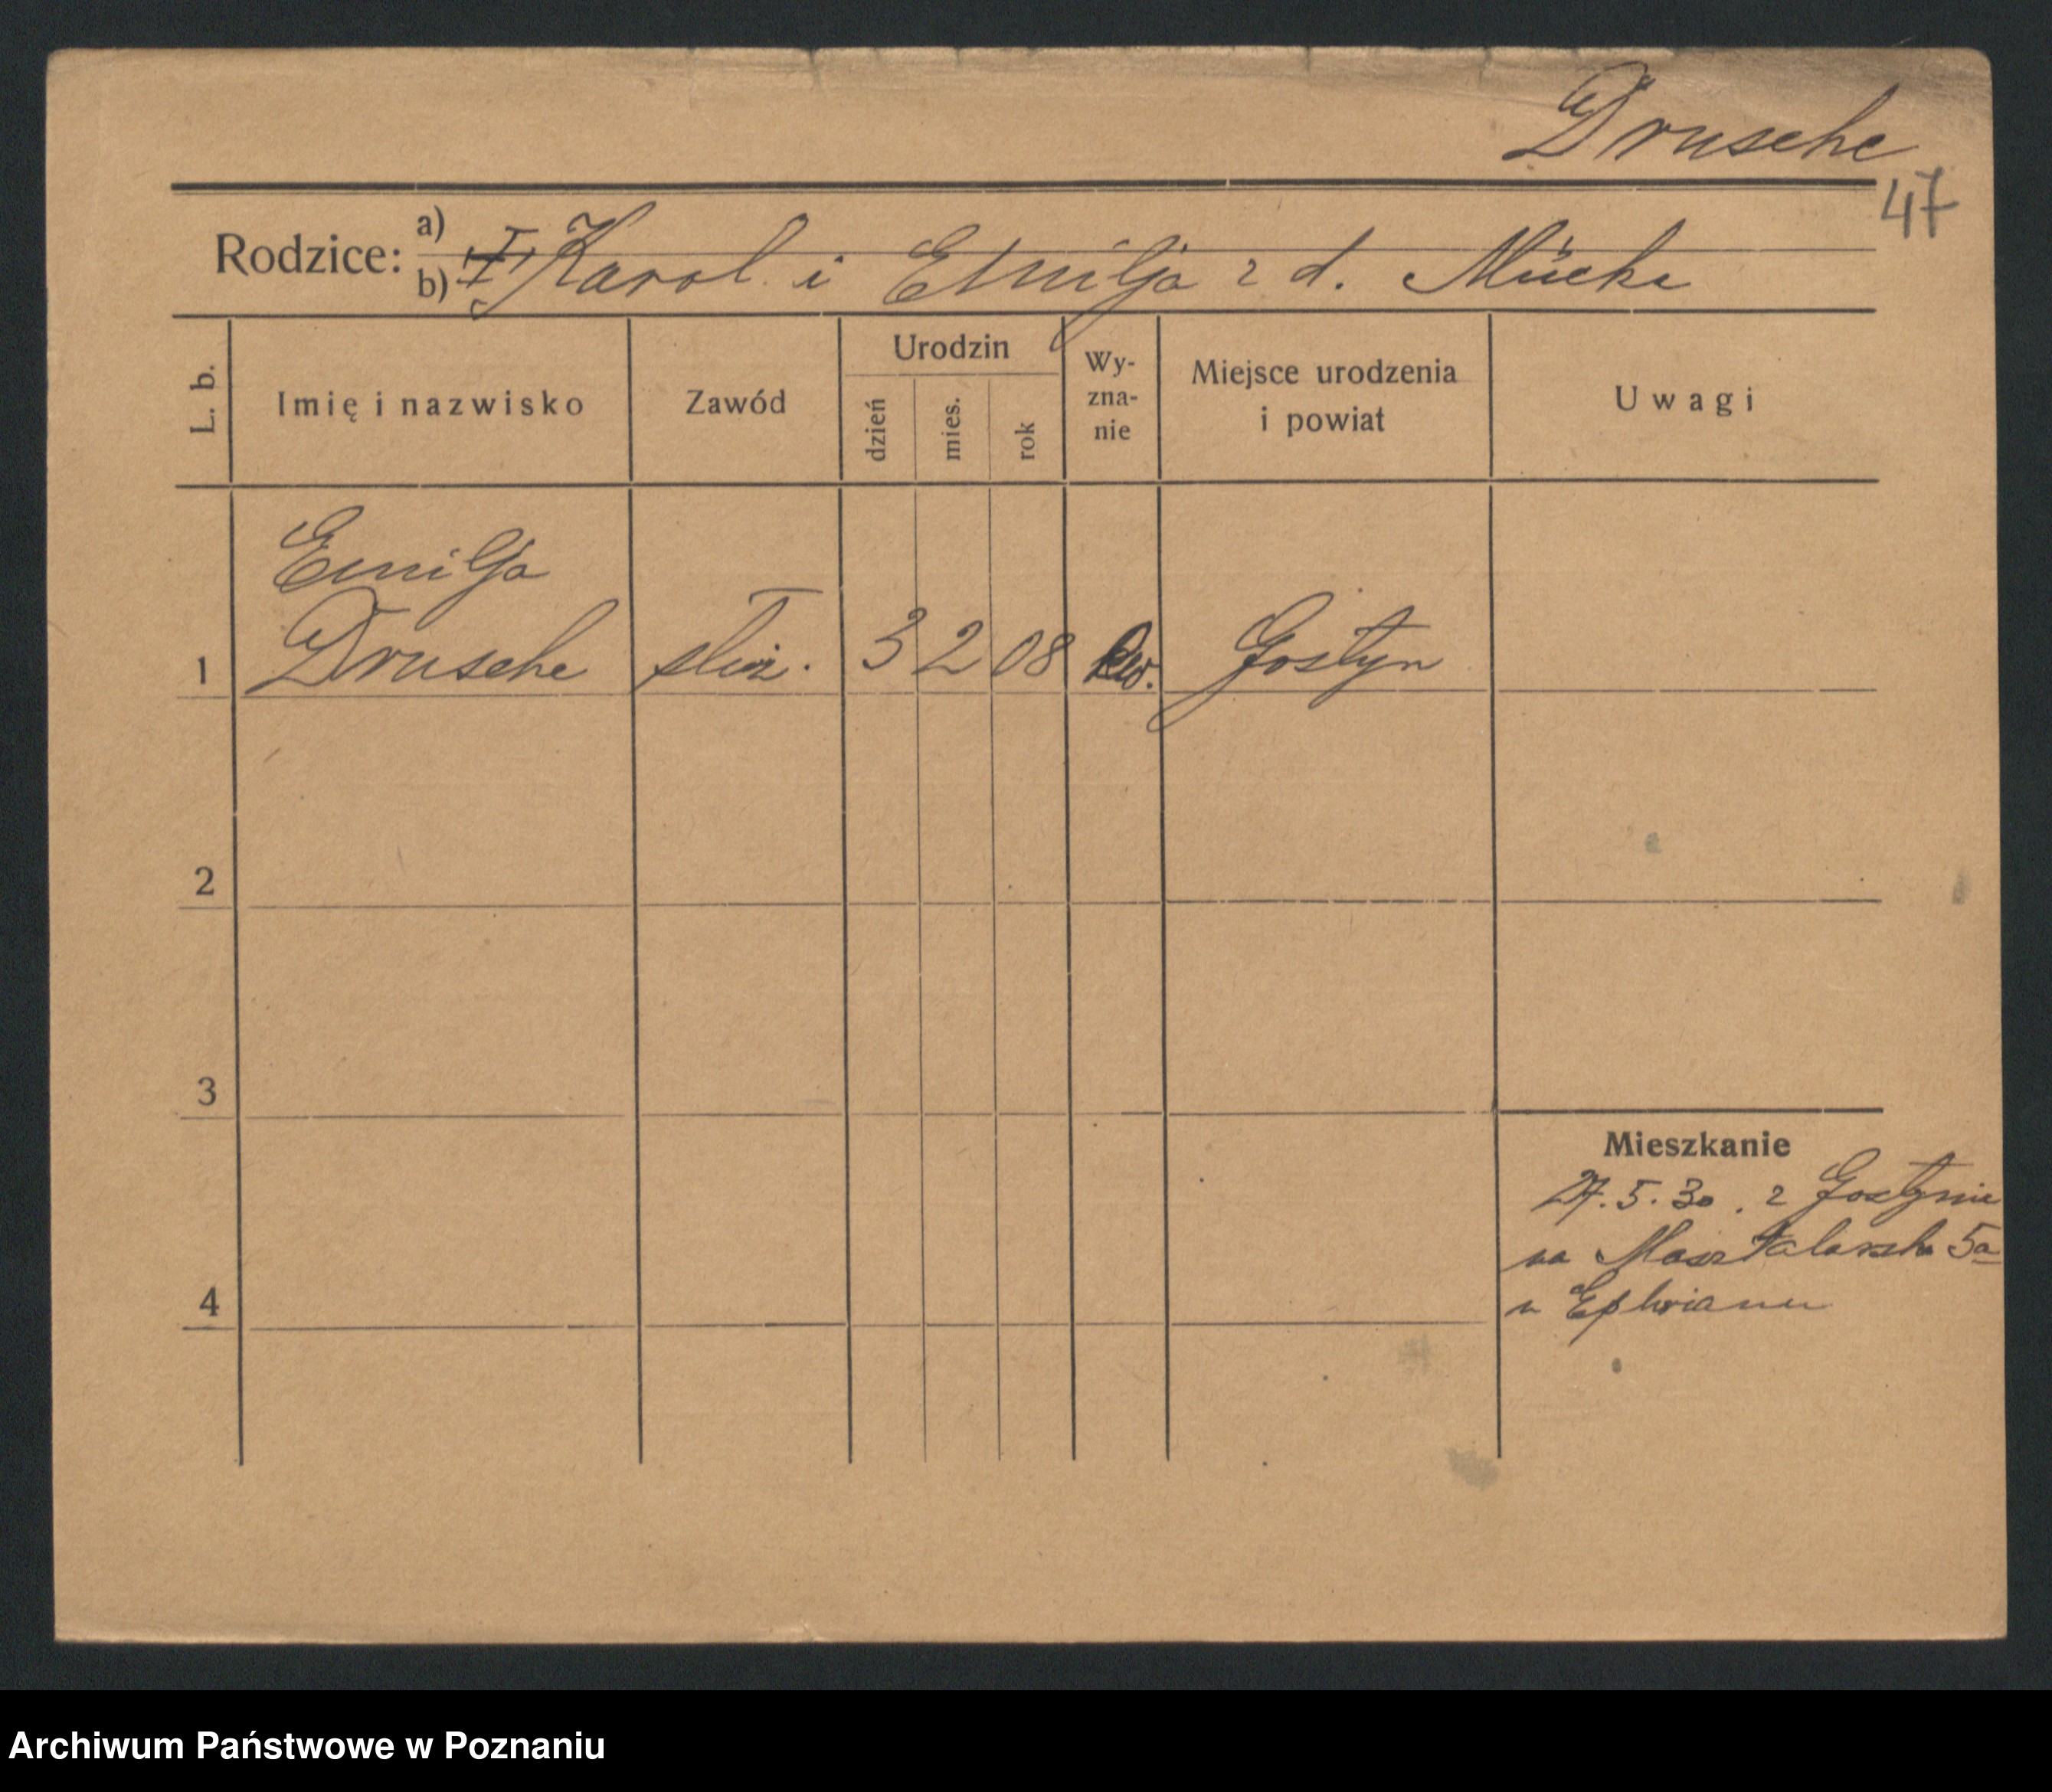 Drusche
47
Rodzice: a)
b) Karol i Emilja z d. Mücke
L. b.
Imię i nazwisko
Zawód
Urodzin
dzień
mies.
rok
Wy-
zna-
nie
Miejsce urodzenia
i powiat
Uwagi
Emilja
1 Drusche służ. 3 2 08 ew. Gostyn
2
3
4
Mieszkanie
27.5.30. z Gostynia
na Masztalarska 5a
u
Archiwum Państwowe w Poznaniu